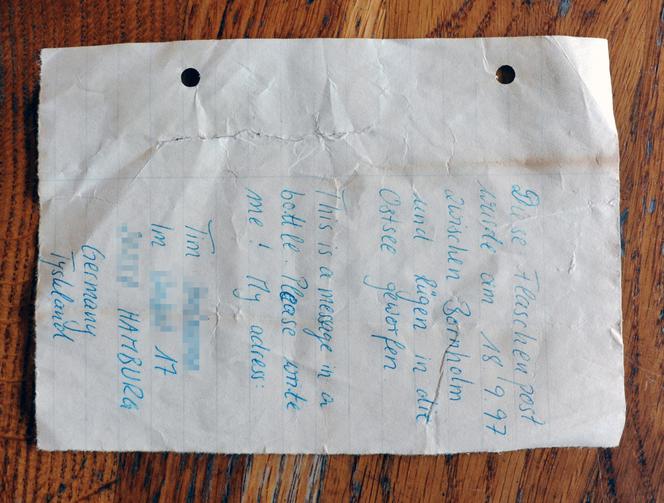 Diese Flaschenpost
wurde am 18.9.97
zwischen Bornholm
und Rügen in die
Ostsee geworfen.
This is a message in a
bottle. Please write
me! My adress:
Tim
Im 17
HAMBURG
Germany
Tyskland